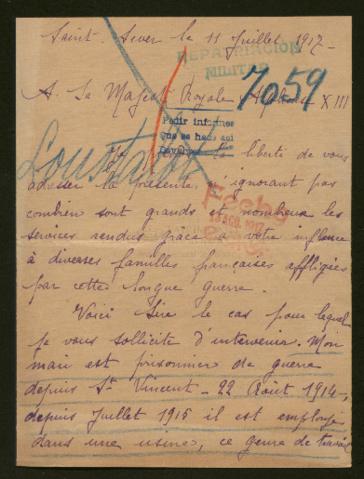 Saint-Sever le 11 Juillet 1917-
REPATRIACION
MILITAR
7059
A Sa Majesté Royale Alphonse XIII
Pedir informes
Que se haga así
la liberté de vous
adresser la présente, n'ignorant pas
combien sont grands et nombreux les
services rendus grâce à votre influence
à diverses familles françaises affligées
par cette longue guerre.
Fecho
1917
Voici Sire le cas pour lequel
je vous sollicite d'intervenir. Mon
mari est prisonnier de guerre
depuis St Vincent - 22 Août 1914,
depuis Juillet 1915 il est employé
dans une usine, ce genre de travail